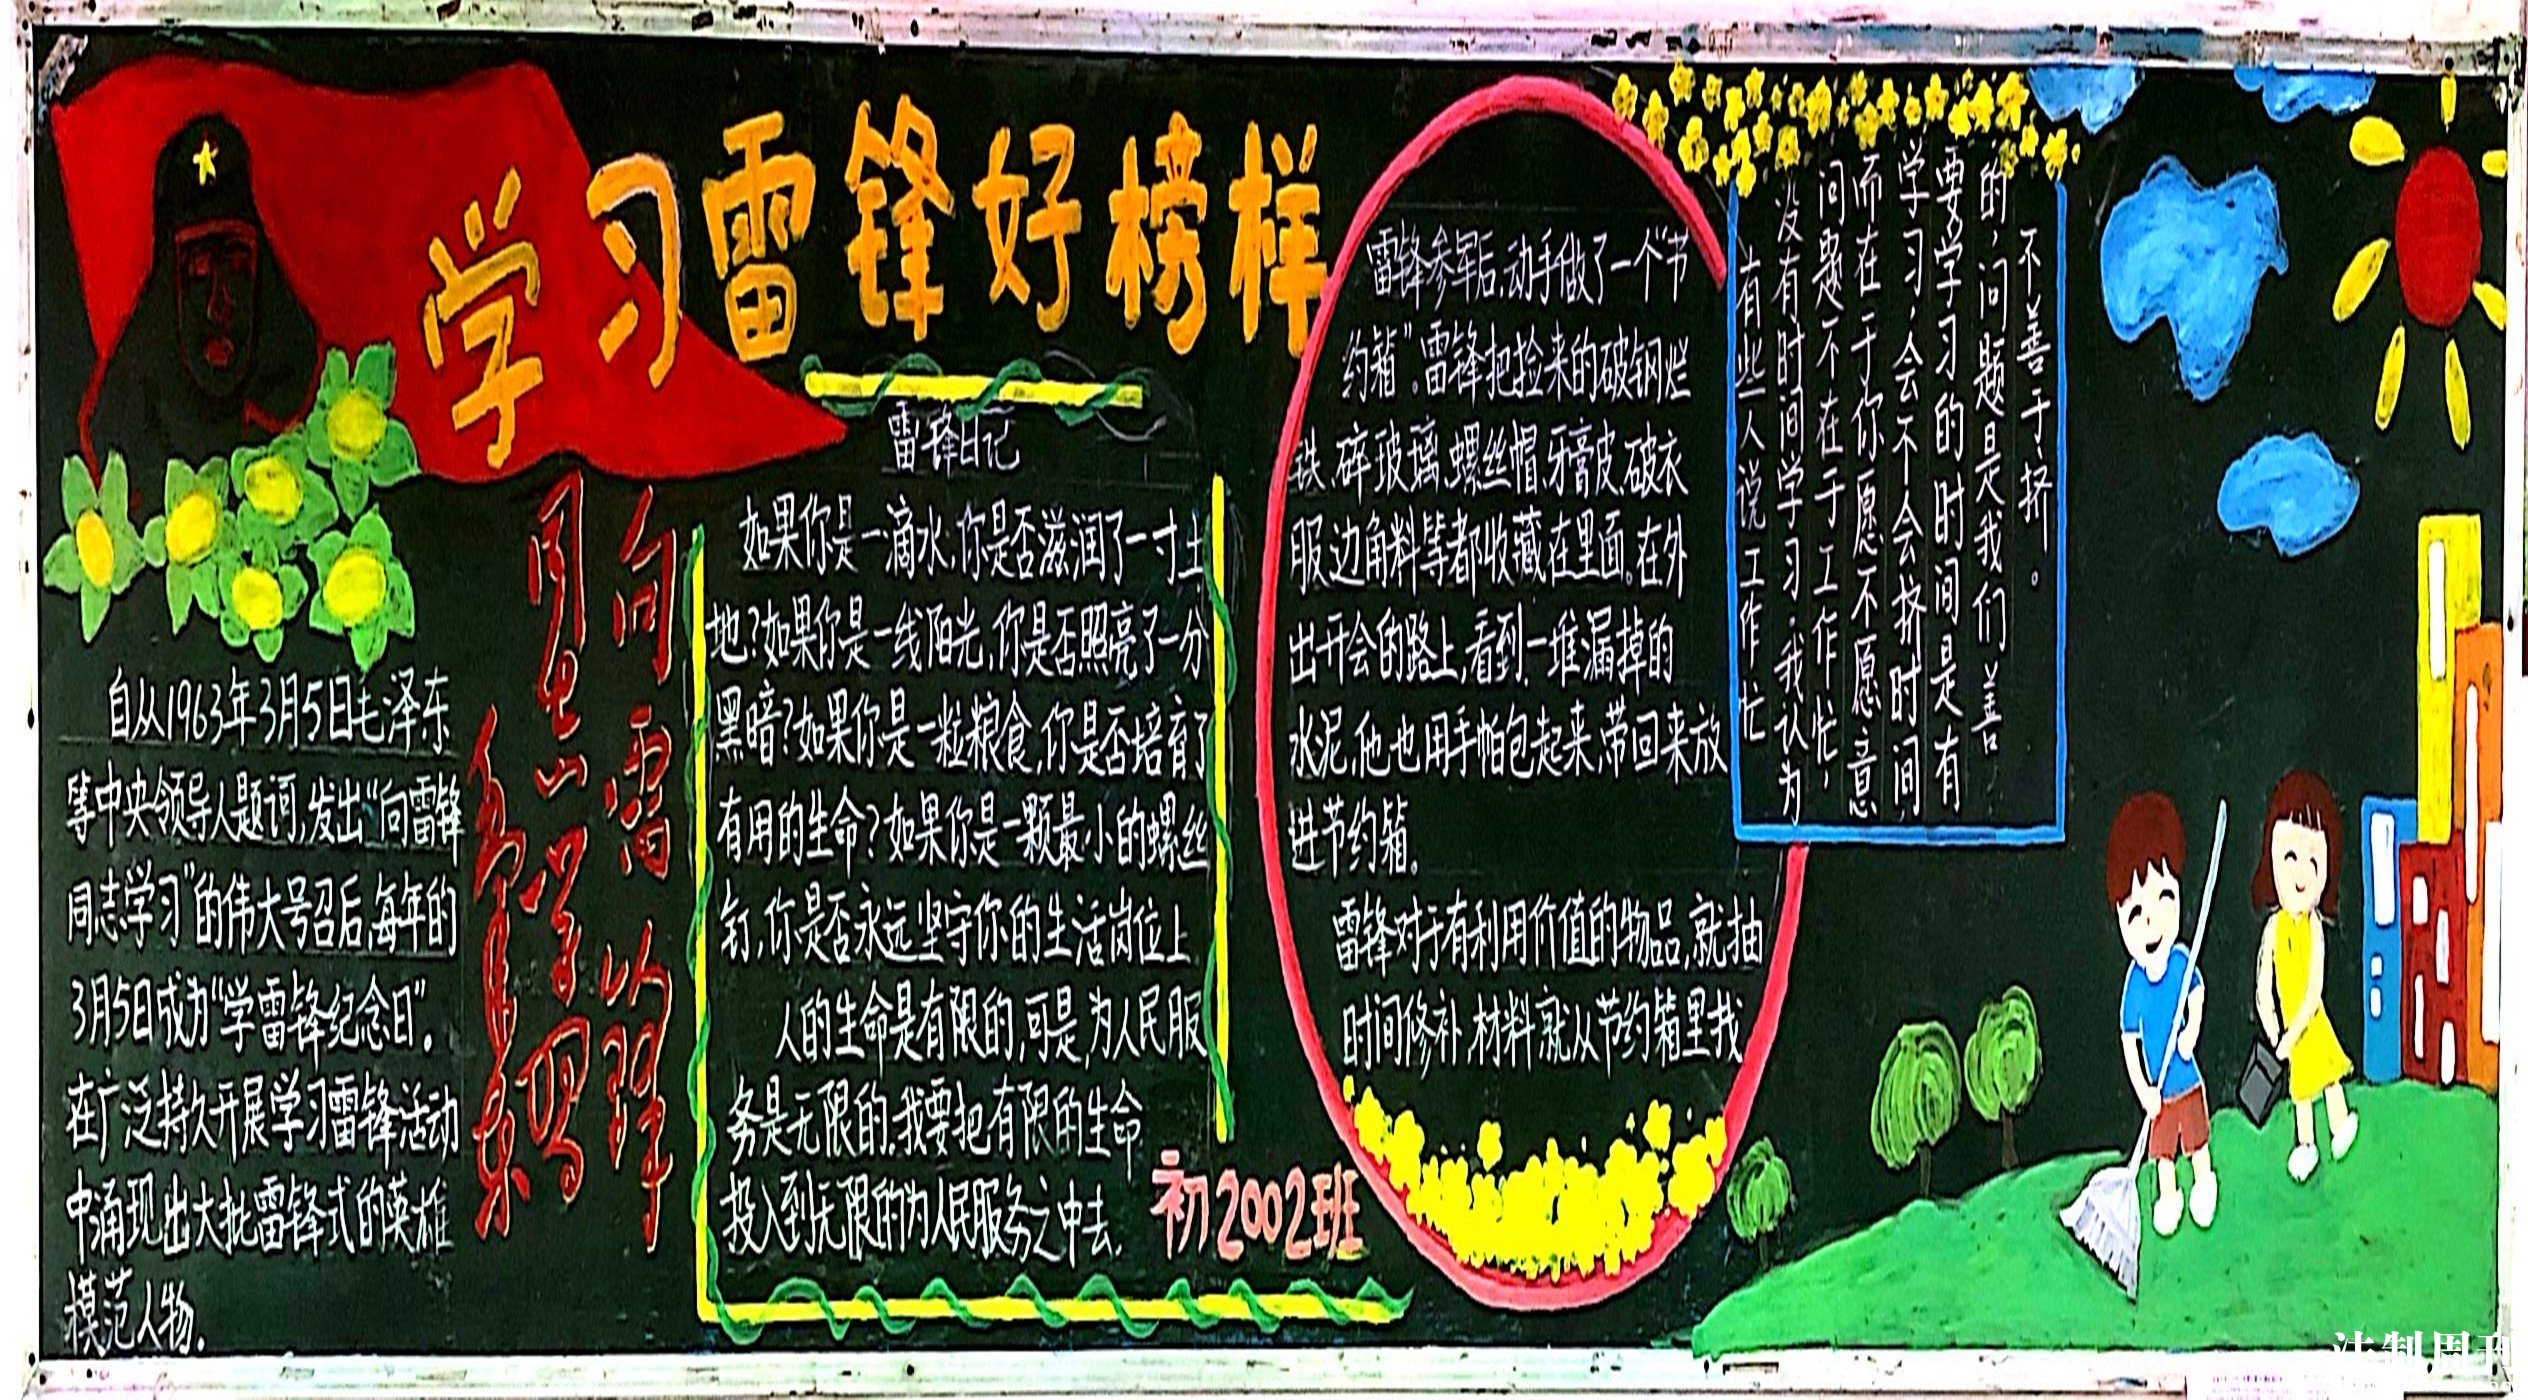 学习雷锋好榜样
自从1963年3月5日毛泽东
等中央领导人题词,发出“向雷锋
同志学习”的伟大号召后,每年的
3月5日成为“学雷锋纪念日”。
在广泛持久开展学习雷锋活动
中涌现出大批雷锋式的英雄
模范人物.
向雷锋
同志学习
毛泽东
雷锋日记
如果你是一滴水,你是否滋润了一寸土
地?如果你是一线阳光,你是否照亮了一分
黑暗?如果你是一粒粮食,你是否培育了
有用的生命?如果你是一颗最小的螺丝
钉,你是否永远坚守你的生活岗位上
人的生命是有限的,可是,为人民服
务是无限的.我要把有限的生命
投入到无限的为人民服务之中去.
初2002班
雷锋参军后,动手做了一个“节
约箱”。雷锋把捡来的破铜烂
铁.碎玻璃.螺丝帽.牙膏皮.破衣
服边角料等都收藏在里面。在外
出开会的路上,看到一堆漏掉的
水泥,他也用手帕包起来,带回来放
进节约箱.
雷锋对于有利用价值的物品,就抽
时间修补,材料就从节约箱里找
有些人说工作忙
没有时间学习.我认为
问题不在于工作忙,
而在于你愿不愿意
学习,会不会挤时间
要学习的时间是有
的,问题是我们善
不善于挤。
法制周刊